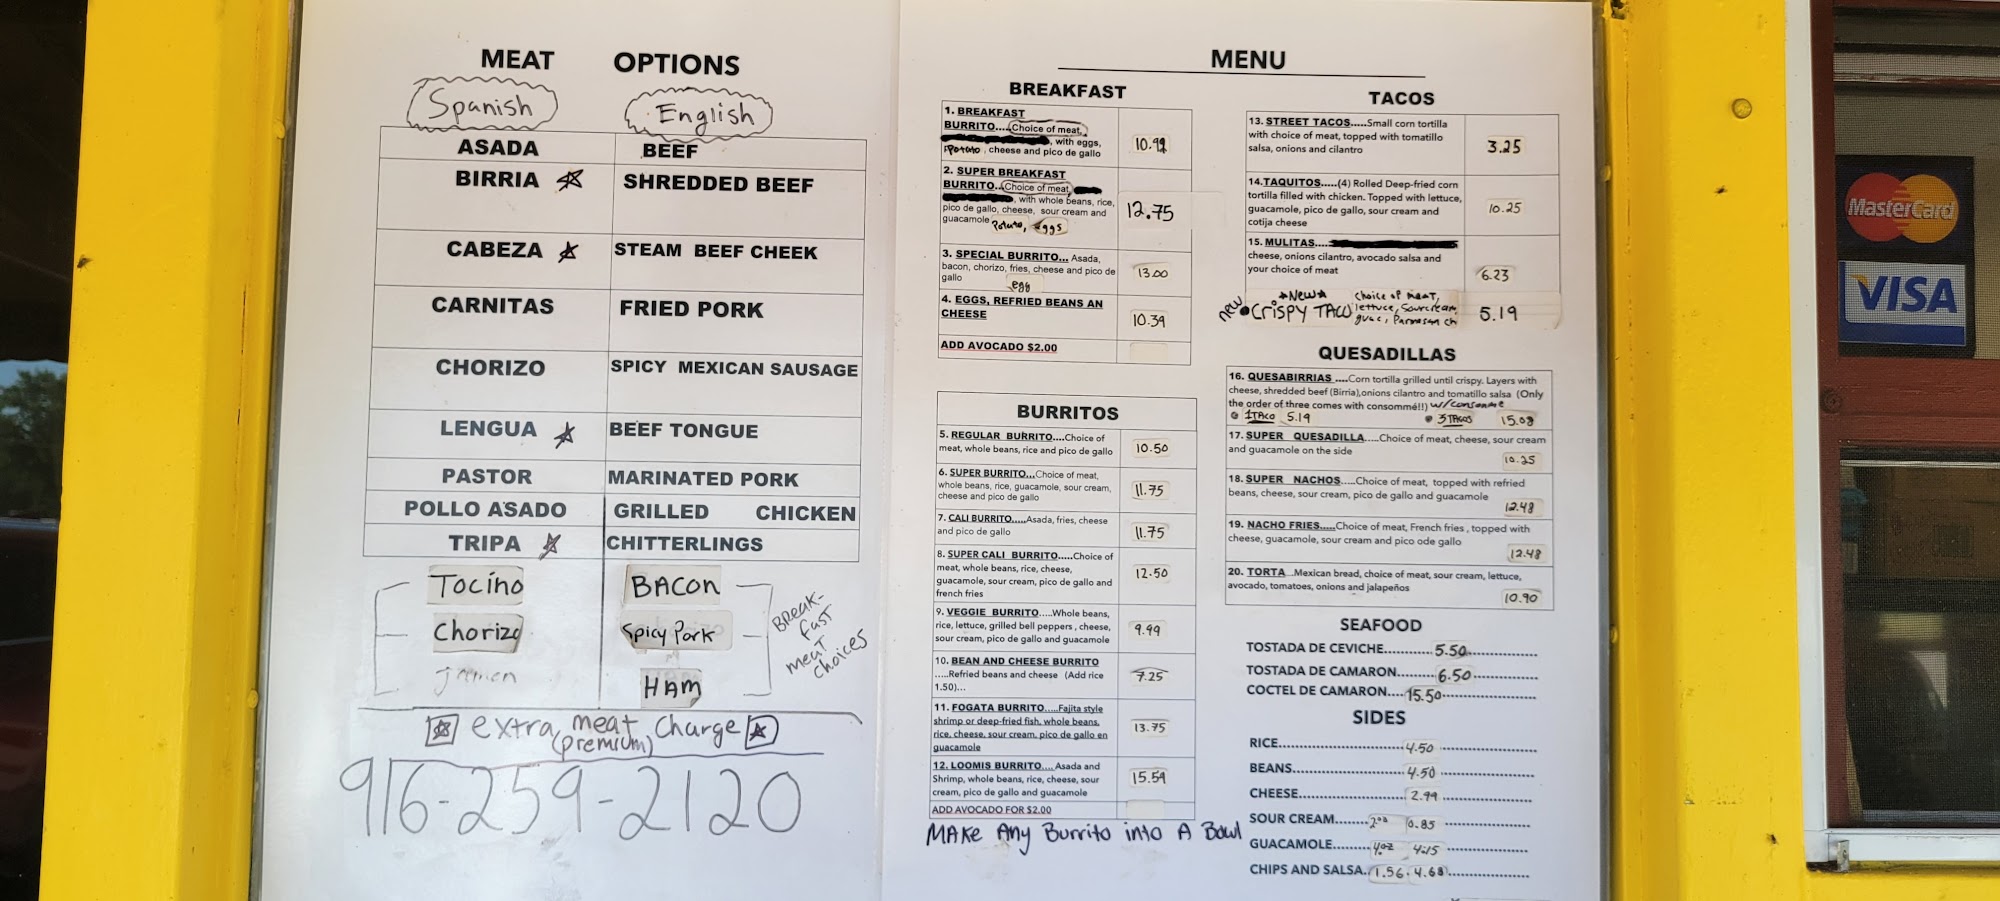 MEAT OPTIONS
Spanish English
ASADA BEEF
BIRRIA SHREDDED BEEF
CABEZA STEAM BEEF CHEEK
CARNITAS FRIED PORK
CHORIZO SPICY MEXICAN SAUSAGE
LENGUA BEEF TONGUE
PASTOR MARINATED PORK
POLLO ASADO GRILLED CHICKEN
TRIPA CHITTERLINGS
Tocino BACON
Chorizo Spicy Pork
HAM
BREAK-
fAST
meaT
choices
extra meat charge
(premium)
916-259-2120
MENU
BREAKFAST
1. BREAKFAST
BURRITO....Choice of meat,
, with eggs,
Potato, cheese and pico de gallo
10.99
2. SUPER BREAKFAST
BURRITO..Choice of meat,
, with whole beans, rice,
pico de gallo, cheese, sour cream and
guacamole Potato, eggs
12.75
3. SPECIAL BURRITO... Asada,
bacon, chorizo, fries, cheese and pico de
gallo egg
13.00
4. EGGS, REFRIED BEANS AN
CHEESE
10.39
ADD AVOCADO $2.00
BURRITOS
5. REGULAR BURRITO....Choice of
meat, whole beans, rice and pico de gallo
10.50
6. SUPER BURRITO...Choice of meat,
whole beans, rice, guacamole, sour cream,
cheese and pico de gallo
11.75
7. CALI BURRITO.....Asada, fries, cheese
and pico de gallo
11.75
8. SUPER CALI BURRITO.....Choice of
meat, whole beans, rice, cheese,
guacamole, sour cream, pico de gallo and
french fries
12.50
9. VEGGIE BURRITO.....Whole beans,
rice, lettuce, grilled bell peppers, cheese,
sour cream, pico de gallo and guacamole
9.99
10. BEAN AND CHEESE BURRITO
.....Refried beans and cheese (Add rice
1.50)...
7.25
11. FOGATA BURRITO.....Fajita style
shrimp or deep-fried fish, whole beans,
rice, cheese, sour cream, pico de gallo en
guacamole
13.75
12. LOOMIS BURRITO....Asada and
Shrimp, whole beans, rice, cheese, sour
cream, pico de gallo and guacamole
15.59
ADD AVOCADO FOR $2.00
MAKE Any Burrito into A Bowl
TACOS
13. STREET TACOS.....Small corn tortilla
with choice of meat, topped with tomatillo
salsa, onions and cilantro
3.25
14.TAQUITOS.....(4) Rolled Deep-fried corn
tortilla filled with chicken. Topped with lettuce,
guacamole, pico de gallo, sour cream and
cotija cheese
10.25
15. MULITAS....
cheese, onions cilantro, avocado salsa and
your choice of meat
6.23
new New
Crispy TACO choice of meat,
lettuce, Sourcream
guac, Parmasan ch
5.19
QUESADILLAS
16. QUESABIRRIAS ....Corn tortilla grilled until crispy. Layers with
cheese, shredded beef (Birria),onions cilantro and tomatillo salsa (Only
the order of three comes with consommé!!) w/consomme
1 TACO 5.19 3 TACOS 15.08
17. SUPER QUESADILLA.....Choice of meat, cheese, sour cream
and guacamole on the side
10.25
18. SUPER NACHOS.....Choice of meat, topped with refried
beans, cheese, sour cream, pico de gallo and guacamole
12.48
19. NACHO FRIES.....Choice of meat, French fries , topped with
cheese, guacamole, sour cream and pico ode gallo
12.48
20. TORTA...Mexican bread, choice of meat, sour cream, lettuce,
avocado, tomatoes, onions and jalapeños
10.90
SEAFOOD
TOSTADA DE CEVICHE...........5.50
TOSTADA DE CAMARON........6.50
COCTEL DE CAMARON....15.50
SIDES
RICE........4.50
BEANS........4.50
CHEESE........2.99
SOUR CREAM........2oz 0.85
GUACAMOLE........4oz 4.15
CHIPS AND SALSA..1.56 - 4.68
MasterCard
VISA